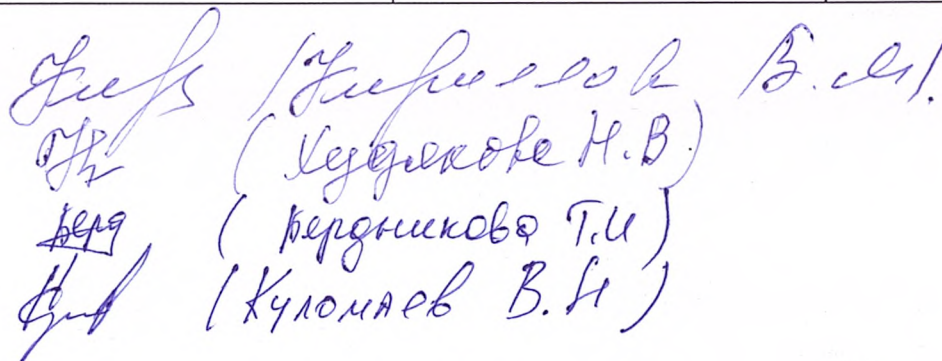 Кир (Кириллов В.М.
(Худякова Н.В.)
Берд (Бердникова Т.И)
(Куломаев В.Н)